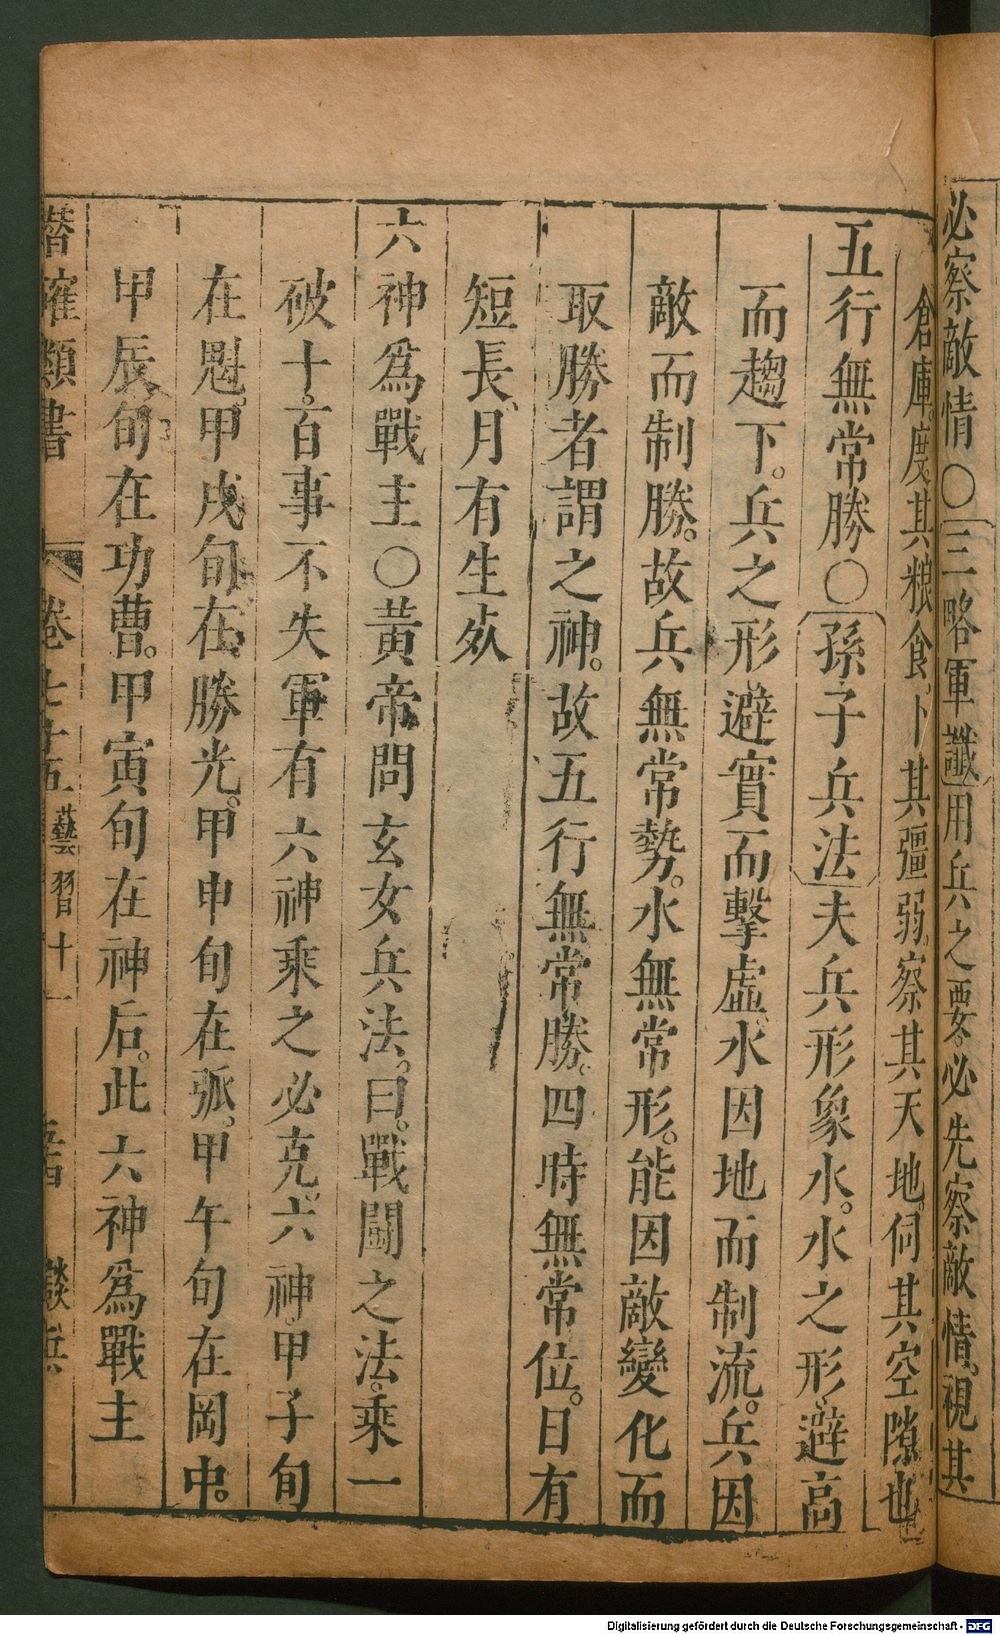 必察敵情〇三略軍讖用兵之要。必先察敵情。視其
倉庫。度其粮食。卜其彊弱。察其天地。伺其空隙也
五行無常勝〇孫子兵法夫兵形象水。水之形、避高
而趨下。兵之形。避實而擊虛。水因地而制流。兵因
敵而制勝。故兵無常勢。水無常形。能因敵變化而
取勝者謂之神。故五行無常勝。四時無常位。日有
短長、月有生死
六神爲戰主〇黃帝問玄女兵法。曰。戰鬬之法。乘一
破十。百事不失軍有六神乘之必克。六神。甲子旬
在魁。甲戌旬在勝光。甲申旬在弧。甲午旬在岡中。
甲辰旬在功曹。甲寅旬在神后。此六神爲戰主
潛確類書 卷七十五 藝習十一 談兵
Digitalisierung gefördert durch die Deutsche Forschungsgemeinschaft - DFG